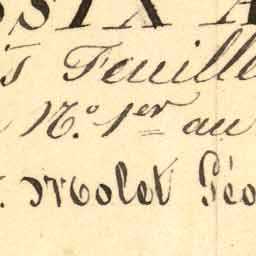 SSIX A
s Feuille
N.º 1er au
. Molet Géo